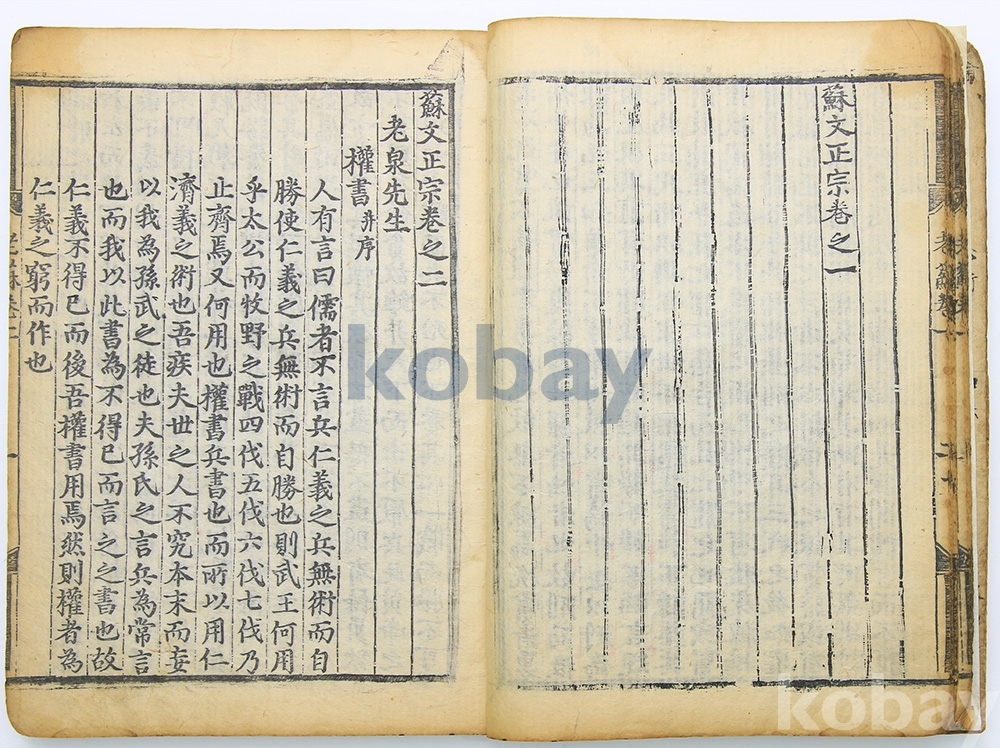 蘇文正宗卷之一
蘇文正宗卷之二
老泉先生
權書 并序
人有言曰儒者不言兵仁義之兵無術而自
勝使仁義之兵無術而自勝也則武王何用
乎太公而牧野之戰四伐五伐六伐七伐乃
止齊焉又何用也權書兵書也而所以用仁
濟義之術也吾疾夫世之人不究本末而妄
以我為孫武之徒也夫孫氏之言兵為常言
也而我以此書為不得已而言之之書也故
仁義不得已而後吾權書用焉然則權者為
仁義之窮而作也
老蘇卷二
一
kobay
kobay